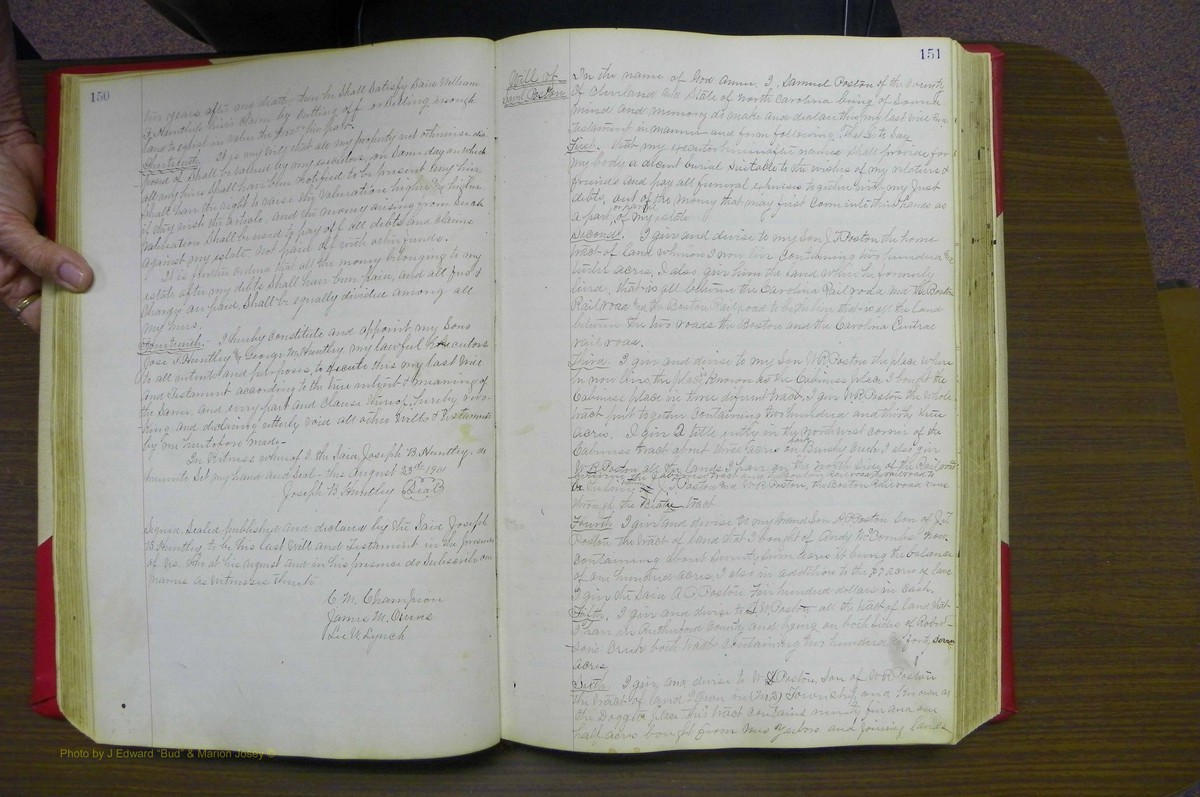 150
two years after my death, then he shall satisfy said William
F. Huntley's heirs claim by cutting off or setting enough
land to equal in value the
Thirteenth. It is my will that all my property not otherwise dis-
posed of shall be valued by my executors, on some day on which
all my heirs shall have been notified to be present. Any heir
shall have the right to raise the valuation higher & higher
if they wish the article. And the money arising from such
valuation shall be used to pay off all debts and claims
against my estate not paid off with other funds.
It is further ordered that all the money belonging to my
estate after my debts shall have been paid, and all just
charges are paid, shall be equally divided among all
my heirs.
Fourteenth:- I hereby constitute and appoint my sons
Jose J. Huntley & George M. Huntley my lawful executors
to all intents and purposes, to execute this my last will
and Testament according to the true intent & meaning of
the same, and every part and clause thereof, hereby revo-
king and declaring utterly void all other Wills & Testaments
by me heretofore made-
In Witness whereof I the said Joseph B. Huntley, do
hereunto set my hand and seal this August 23rd 1901
Joseph B. Huntley (Seal)
Signed, sealed, published and declared by the said Joseph
B. Huntley to be his last Will and Testament in the presence
of us, who at his request and in his presence do subscribe our
names as witnesses thereto
C. M. Champion
James M.
Lee V. Lynch
151
Will of
Saml Poston
In the name of God Amen, I, Samuel Poston of the County
of Cleveland and State of North Carolina being of sound
mind and memory do make and declare this my last will and
testament in manner and form following. That is to say
First. That my executor hereinafter named shall provide for
my body a decent burial suitable to the wishes of my relatives &
friends and pay all funeral expenses together with my just
debts, out of the money that may first come into his hands as
a part or parcel of my estate
Second. I give and devise to my son J. F. Poston the home
tract of land whereon I now live containing two hundred
acres, I also give him the land where he formerly
lived, that is all between the Carolina Railroad and the Boston
Railroad and the Boston Railroad to be the line that is all the land
between the two roads the Boston and the Carolina Central
railroad.
Third. I give and devise to my son W. R. Poston the place where
he now lives the place known as the Cabiness place I bought the
Cabiness place in three different tracts, I give W R Poston the whole
tract put together containing two hundred and thirty three
acres. I give a title entry in the northwest corner of the
Cabiness tract about three acres on Brushy Creek, I also give
W. R. Poston all the lands I have on the north side of the Railroad
joining the Cabiness tract and
Poston and W. R. Poston, the Boston Railroad runs
through the tract
Fourth I give and devise to my Grand Son A. P. Poston son of J. F.
Poston the tract of land that I bought of Andy McCombs now
containing about Seventy Seven acres it being the balance
of one hundred acres, I also in addition to the 77 acres of land
I give the said A P Poston Five hundred dollars in Cash.
Fifth. I give and devise to Poston all the tract of land that
I have in Rutherford County and lying on both sides of Rober-
son's Creek both tracts containing two hundred & forty seven
acres
Sixth I give and devise to Poston, Son of W R Poston
the tract of land I own in No. 2 Township and known as
the Doggett place this tract contains ninety five and one
half acres bought from Yarboro and joining lands
Photo by J Edward "Bud" & Marion Josey ©